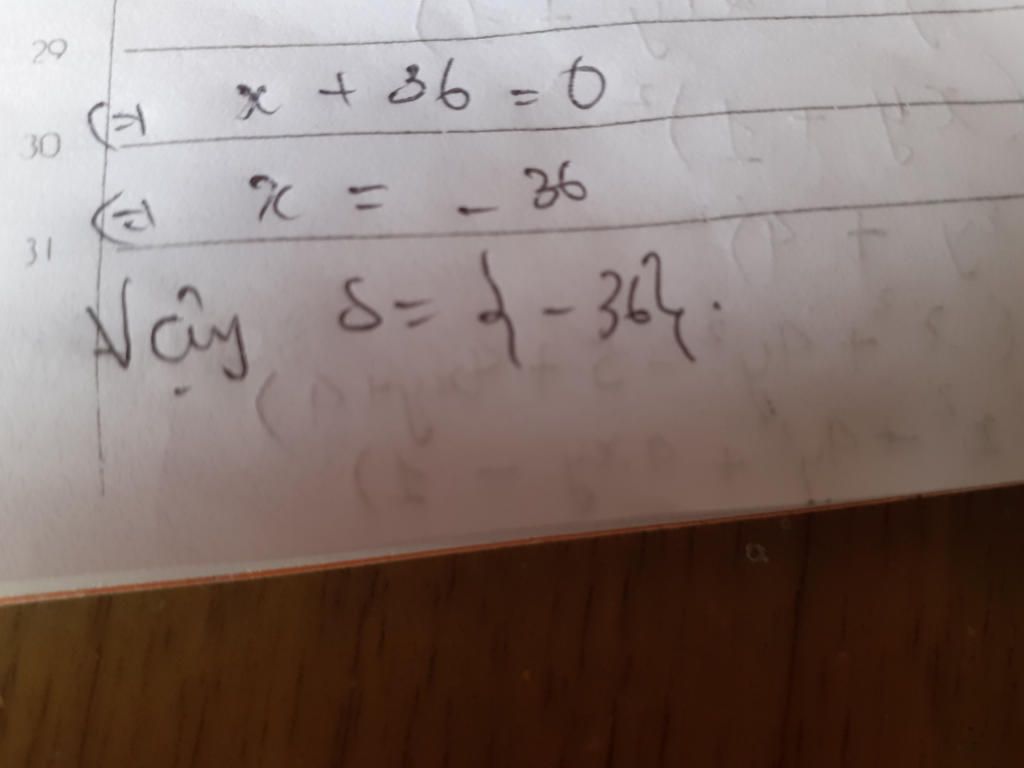 29
⇔ x + 36 = 0
30
⇔ x = - 36
31
Vậy S = {- 36}.